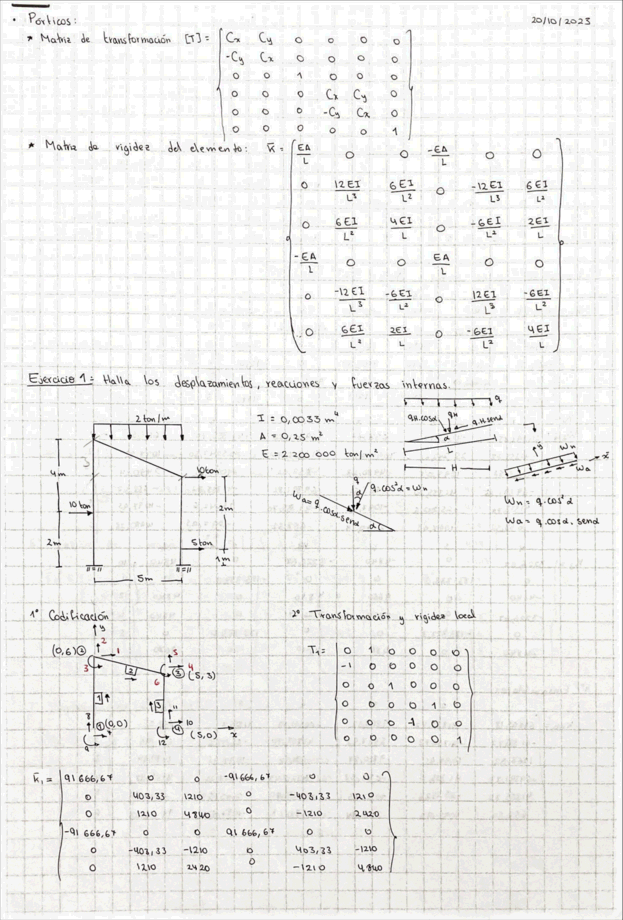 • Pórticos:
20/10/2023
* Matriz de transformación [T] =
Cx Cy 0 0 0 0
-Cy Cx 0 0 0 0
0 0 1 0 0 0
0 0 0 Cx Cy 0
0 0 0 -Cy Cx 0
0 0 0 0 0 1
* Matriz de rigidez del elemento: k̄ =
EA/L 0 0 -EA/L 0 0
0 12EI/L³ 6EI/L² 0 -12EI/L³ 6EI/L²
0 6EI/L² 4EI/L 0 -6EI/L² 2EI/L
-EA/L 0 0 EA/L 0 0
0 -12EI/L³ -6EI/L² 0 12EI/L³ -6EI/L²
0 6EI/L² 2EI/L 0 -6EI/L² 4EI/L
Ejercicio 1: Halla los desplazamientos, reacciones y fuerzas internas.
2 ton/m
4m
10 ton
10 ton
2m
2m
5 ton
1m
5m
I = 0,0033 m⁴
A = 0,25 m²
E = 2 200 000 ton/m²
q
qH.cosα
qH
qH.senα
α
L
H
q
α
q.cos²α = Wn
Wa = q.cosα.senα
α
ȳ
Wn
x̄
Wa
Wn = q.cos²α
Wa = q.cosα.senα
1° Codificación
y
2
(0,6) ②
1
3
2
5
4
③ (5,3)
6
1
3
8
① (0,0)
7
9
11
10
④
(5,0)
x
12
2° Transformación y rigidez local
T₁ =
0 1 0 0 0 0
-1 0 0 0 0 0
0 0 1 0 0 0
0 0 0 0 1 0
0 0 0 -1 0 0
0 0 0 0 0 1
k̄₁ =
91 666,67 0 0 -91 666,67 0 0
0 403,33 1210 0 -403,33 1210
0 1210 4840 0 -1210 2420
-91 666,67 0 0 91 666,67 0 0
0 -403,33 -1210 0 403,33 -1210
0 1210 2420 0 -1210 4840